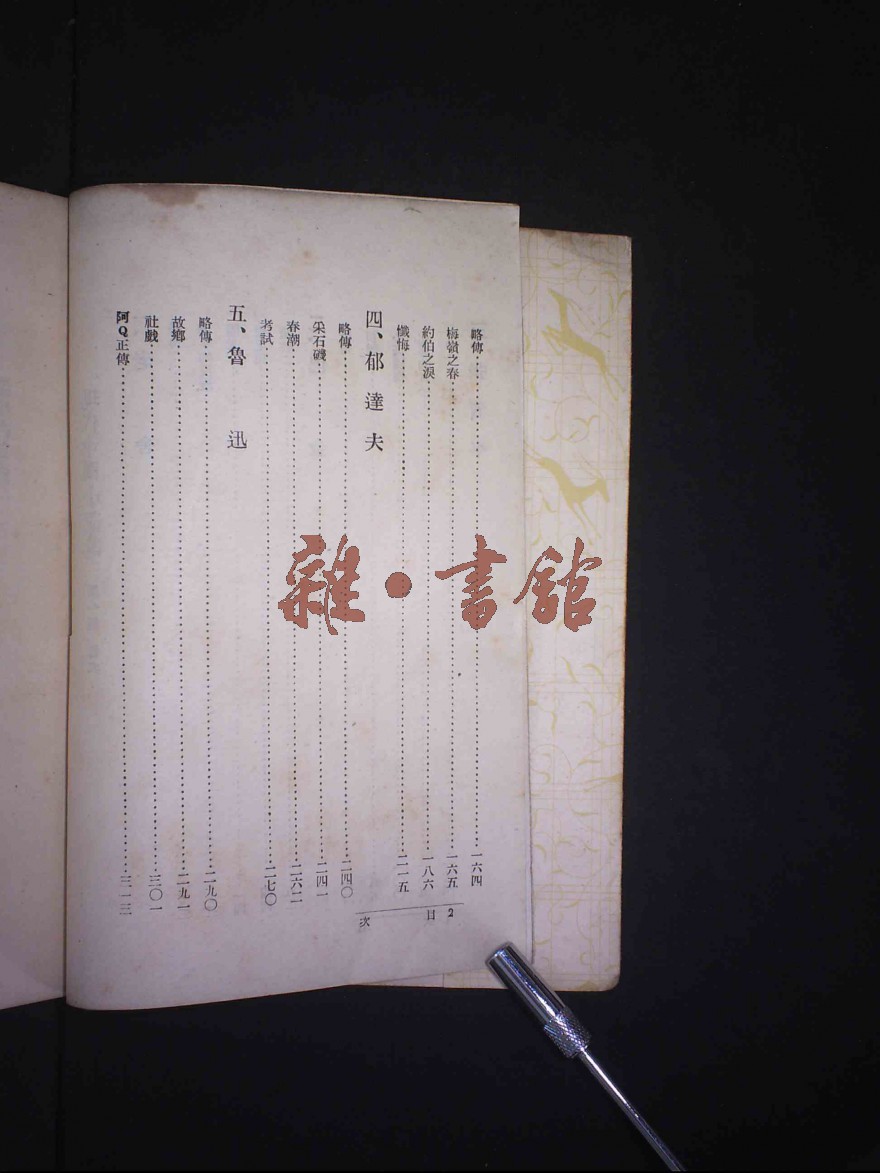 略傳……一六四
梅嶺之春……一六五
約伯之淚……一八六
懺悔……二一五
四、郁達夫
略傳……二四〇
采石磯……二四一
春潮……二六二
考試……二七〇
五、魯迅
略傳……二九〇
故鄉……二九一
社戲……三〇一
阿Q正傳……三一三
目次 2
雜·書舘